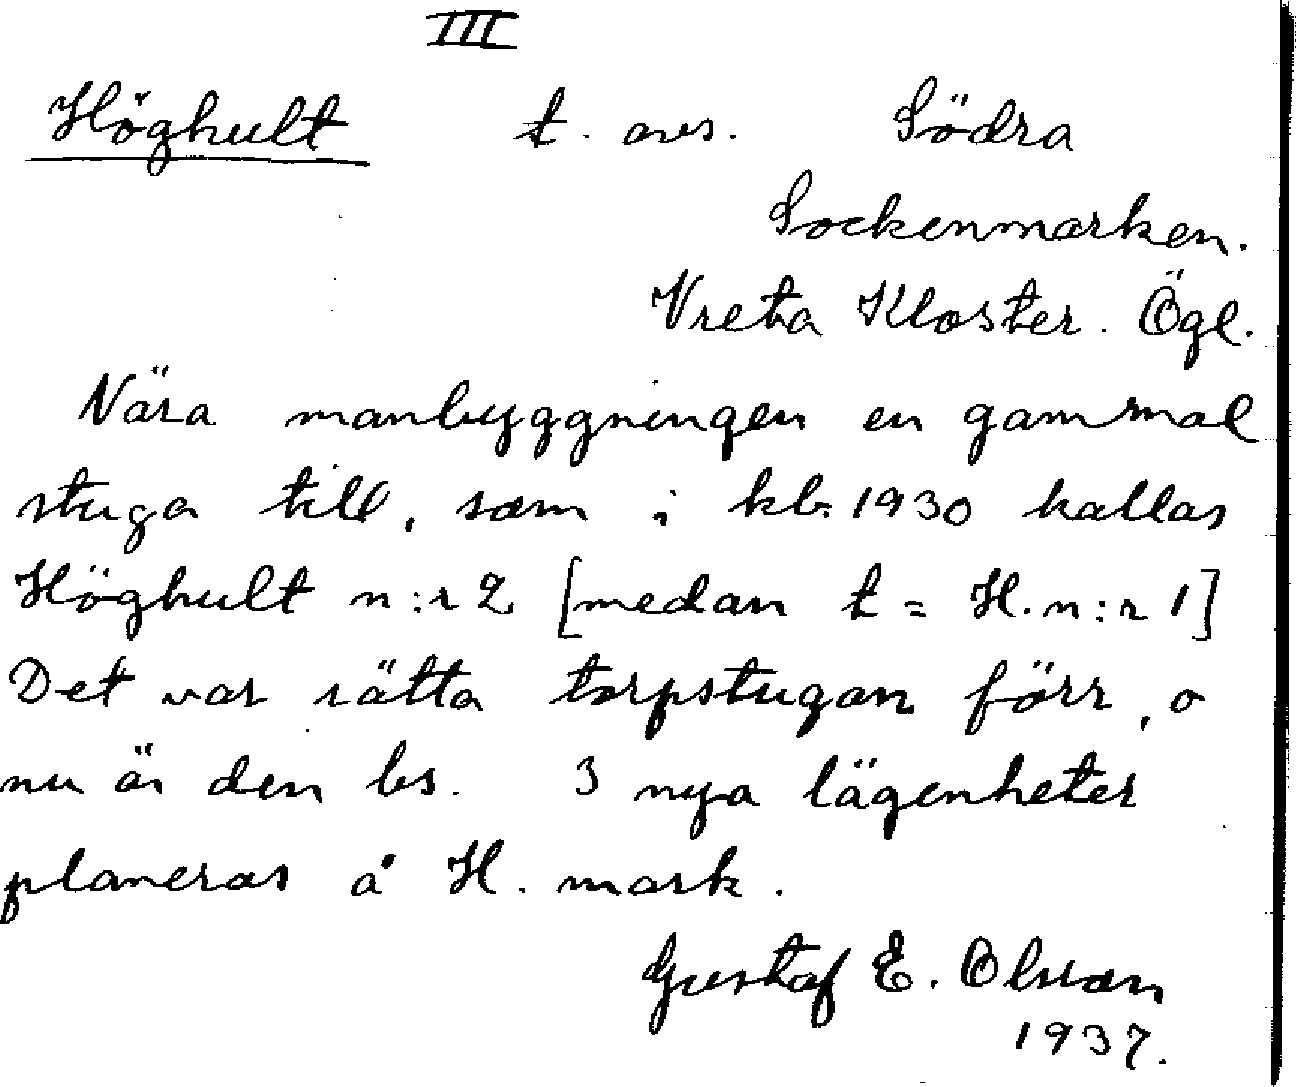 III
Höghult t. avs. Södra
Sockenmarken.
Vreta Kloster. Ögl.
Nära manbyggningen en gammal
stuga till, som i kb. 1930 kallas
Höghult n:r 2 [medan t = H. n:r 1]
Det var rätta torpstugan förr, o
nu är den bs. 3 nya lägenheter
planeras å H. mark.
Gustaf E. Olsson
1937.